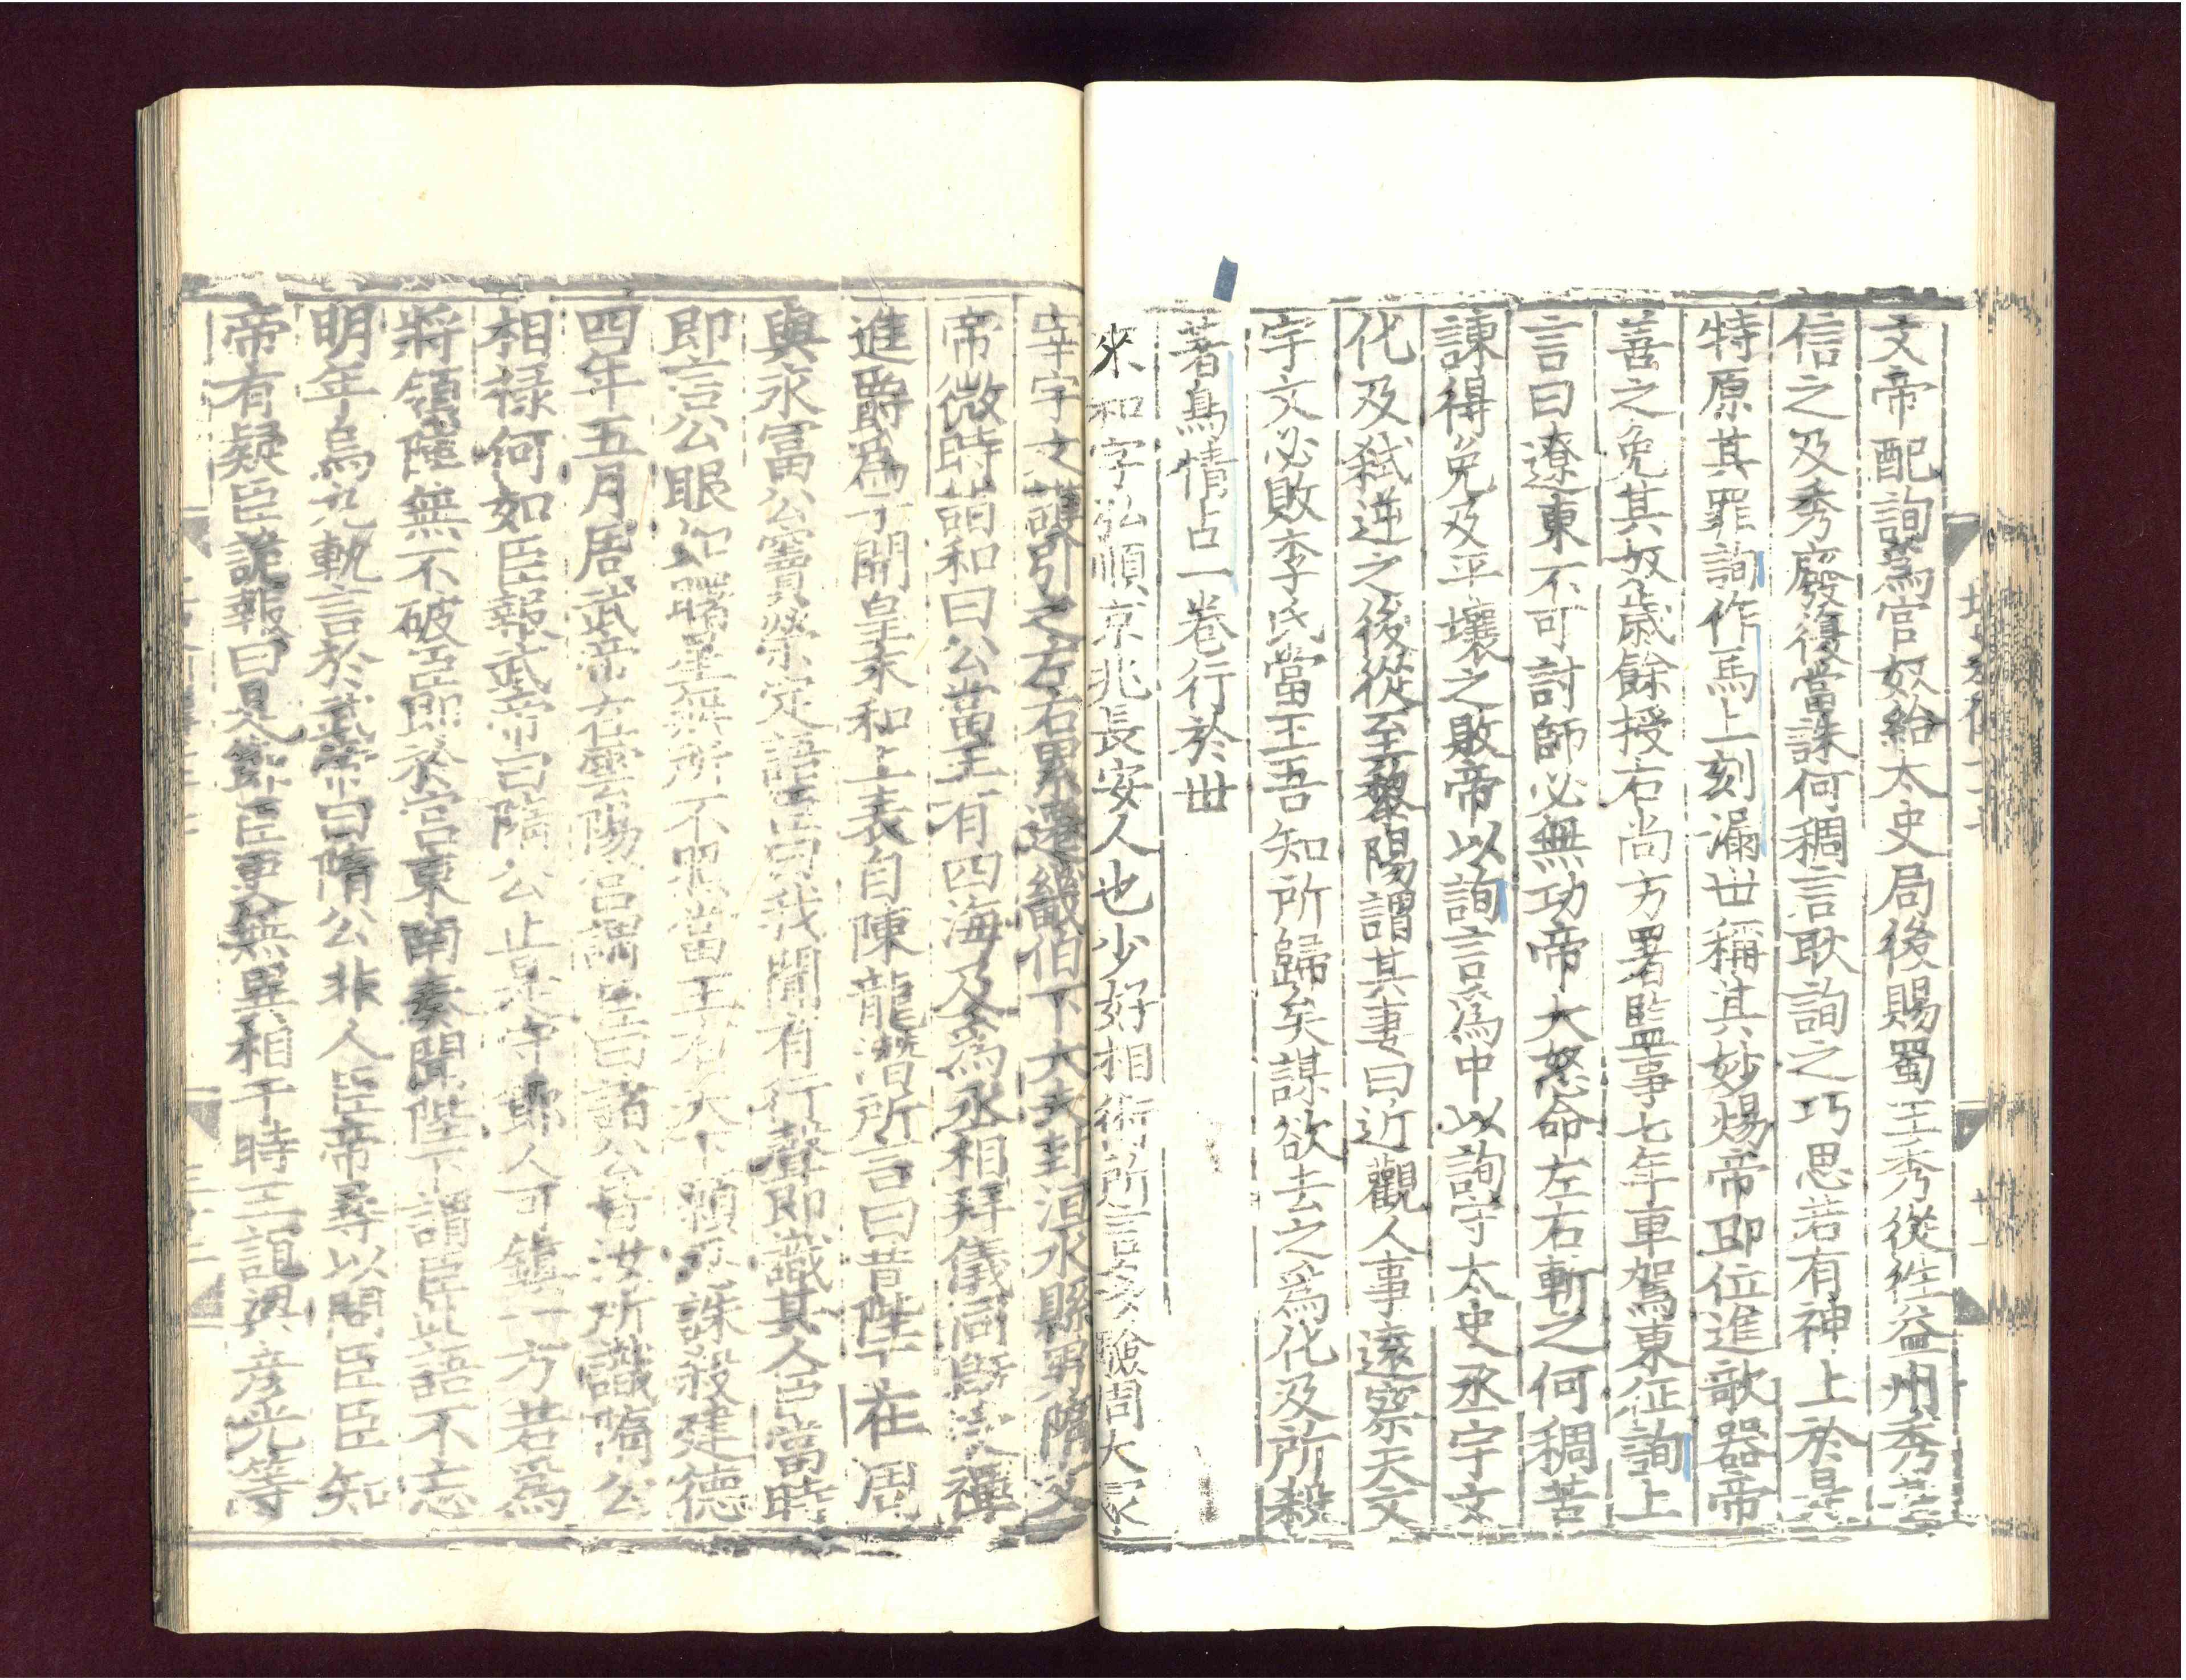 文帝配詢爲官奴給太史局後賜蜀王秀從往益州秀甚
信之及秀廢復當誅何稠言耿詢之巧思若有神上於是
特原其罪詢作馬上刻漏世稱其妙煬帝即位進歌器帝
善之免其奴歲餘授右尚方署監事七年車駕東征詢上
言曰遼東不可討師必無功帝大怒命左右斬之何稠苦
諫得免及平壤之敗帝以詢言爲中以詢守太史丞宇文
化及弑逆之後從至黎陽謂其妻曰近觀人事遠察天文
宇文必敗李氏當王吾知所歸矣謀欲去之爲化及所殺
著鳥情占一卷行於世
來和字弘順京兆長安人也少好相術所言多驗周大冢
宰宇文護引之左右累遷畿伯下大夫封洹水縣男隋文
帝微時詣和曰公當王有四海及爲丞相拜儀同既受禪
進爵爲子開皇末和上表自陳龍潛所言曰昔陛下在周
與永富公竇榮定語臣曰我聞有行聲即識其人臣當時
即言公眼如曙星無所不照當王有天下願忍誅殺建德
四年五月周武帝在雲陽宮謂臣曰諸公皆汝所識隋公
相祿何如臣報武帝曰隋公止是守節人可鎮一方若爲
將領陣無不破臣即於宮東南奏聞陛下謂臣此語不忘
明年烏丸軌言於武帝曰隋公非人臣帝尋以問臣臣知
帝有疑臣詭報曰是節臣更無異相于時王誼與彥光等